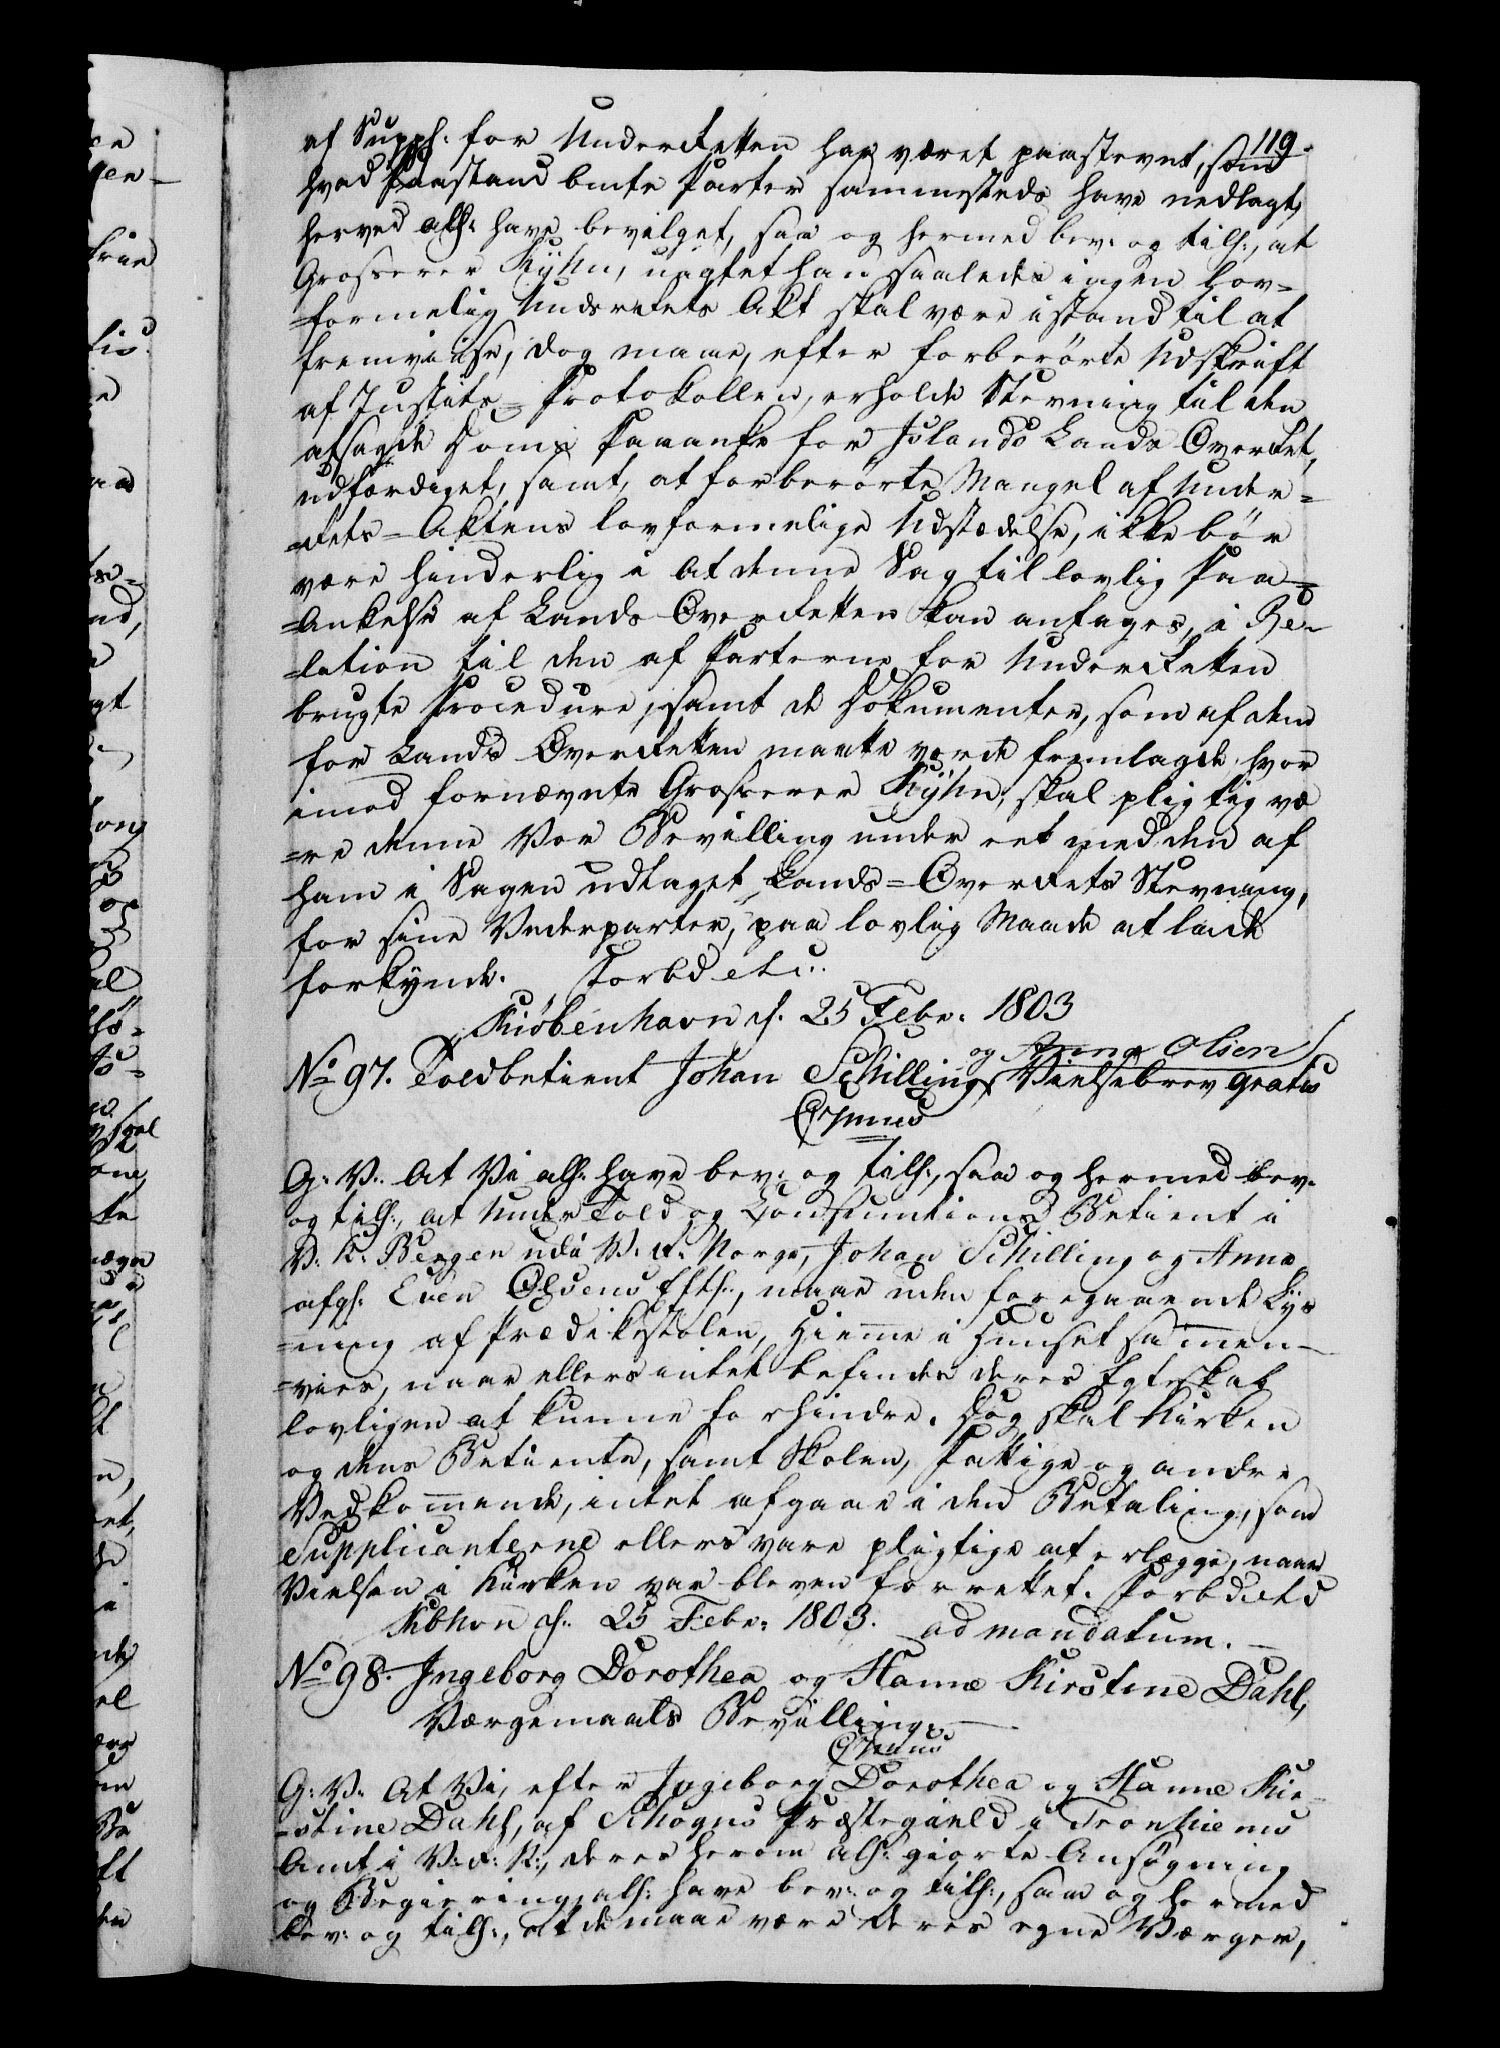 119.
af Suppl: for Underretten har været paastevnt, som
hvad Paastand bmte Parter sammesteds have nedlagt,
herved allr: have bevilget, saa og hermed bev: og till:, at
Grosserer Kÿhn, uagtet han saaledes ingen Lov-
=formelig Underrets Akt skal være istand til at
fremviise, dog maae, efter forberörte Udskrift
af Justits-Protokollen, erholde Stevning til den
afsagde Doms Paaanke for Jslands Lands Overret,
udfærdiget, samt, at forberörte Mangel af Under=
=rets-Aktens lovformelige Udstædelse, ikke bör
være hinderlig i at denne Sag til lovlig Paa=
=Ankelse af Lands Overretten kan antages, i Re-
=lation til den af Parterne for Underretten
brugte Procedure, samt de Dokumenter, som af dem
for Lands Overretten maatte vorde fremlagde, hvor
imod fornævnte Grosserer Kÿhn, skal pligtig væ
=re denne Vor Bevilling under eet med den af
ham i Sagen udtaget Lands=Overrets Stevning,
for sine Vederparter, paa lovlig Maade at lade
forkynde. Forbd etc:
Kiöbenhavn d. 25 Febr: 1803
og Anna Olsen
No 97. Toldbetient Johan Schillings Vielsebrev gratis
G: V: At Vi allr: have bev: og till:, saa og hermed bev:
og till:, at Under Told og Consumtions Betient i
V: K: Bergen udi V: R: Norge, Johan Schilling og Anna
afg: Even Olsens Efth:, maae uden foregaaende Lys
=ning af Prædikestolen, Hiemme i Huuset sammen-
=vies, naar ellers intet befindes deres Egteskab
lovligen at kunne forhindre. Dog skal Kirken
og dens Betiente, samt Skolen, Fattige og andre
Vedkommende, intet afgaae i den Betaling, som
Supplicanterne ellers vare pligtige at erlægge, naar
Vielsen i Kirken var bleven forrettet. Forbd etc
Kbhvn d. 25 Febr: 1803. ad mandatum.
No 98. Ingeborg Dorothea og Hanne Kirstine Dahl,
Værgemaals Bevilling.
G: V: At Vi, efter Ingeborg Dorothea og Hanne Kir-
=stine Dahl, af Schogns Præstegield i Tronhiems
Amt i V: R: N:, deres herom allr: giorte Ansøgning
og Begiering, allr: have bev: og till:, saa og hermed
bev: og till:, at de maae være deres egne Værger,